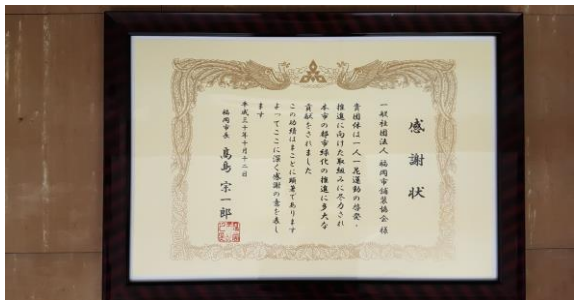 感謝状
一般社団法人 福岡市舗装協会 様
貴団体は一人一花運動の啓発・
推進に向けた取組みに尽力され
本市の都市緑化の推進に多大な
貢献をされました
この功績はまことに顕著であります
よってここに深く感謝の意を表し
ます
平成三十年十月十二日
福岡市長 髙島 宗一郎